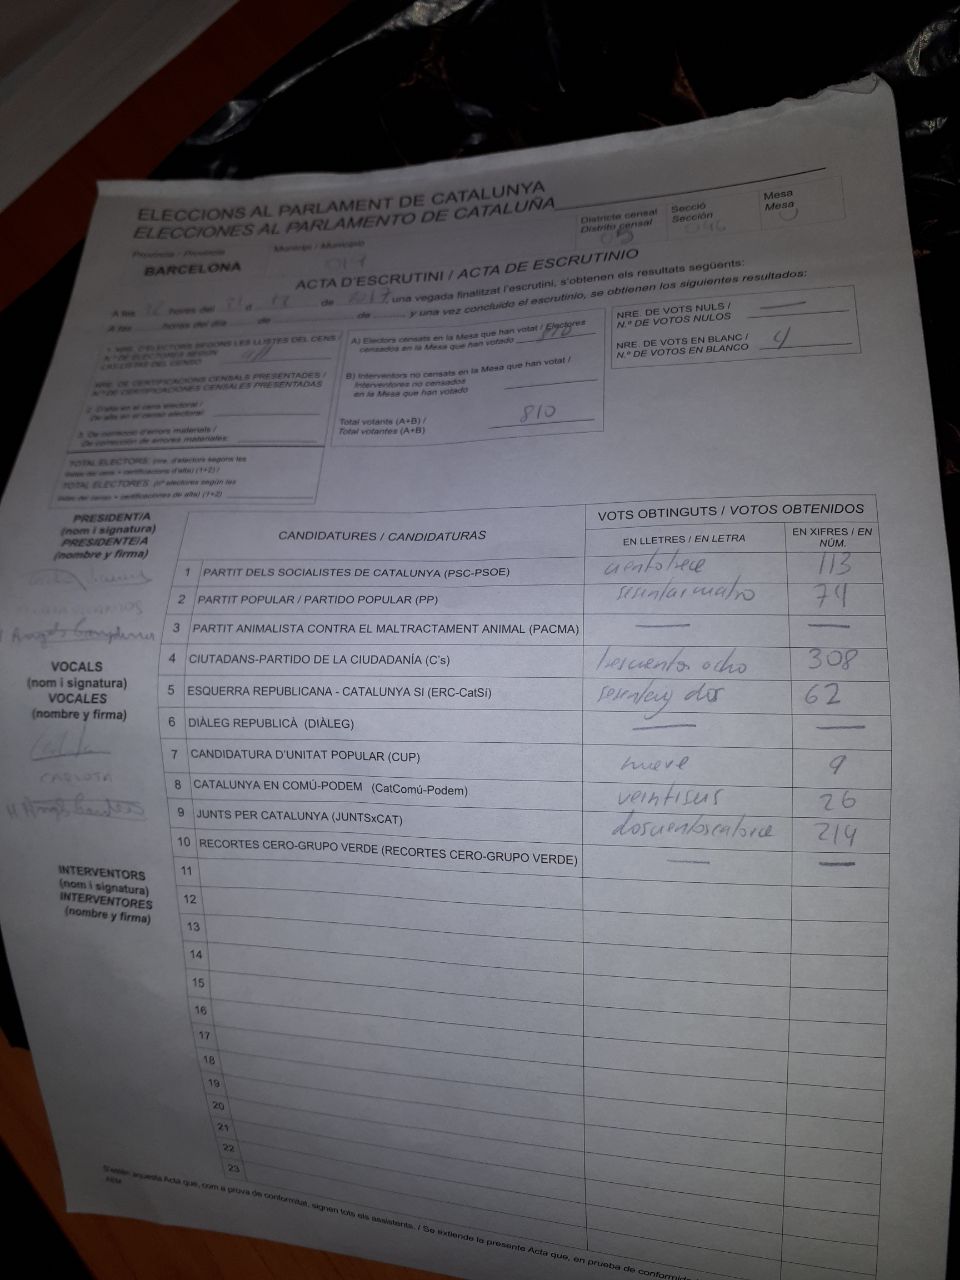 ELECCIONS AL PARLAMENT DE CATALUNYA
ELECCIONES AL PARLAMENTO DE CATALUÑA
Província / Provincia
BARCELONA
Municipi / Municipio
019
Districte censal
Distrito censal
05
Secció
Sección
046
Mesa
Mesa
ACTA D'ESCRUTINI / ACTA DE ESCRUTINIO
A les hores del 21 d 12 de 2017, una vegada finalitzat l'escrutini, s'obtenen els resultats següents:
A las horas del día de de y una vez concluido el escrutinio, se obtienen los siguientes resultados:
1. NRE. D'ELECTORS SEGONS LES LLISTES DEL CENS /
N.º DE ELECTORES SEGÚN
LAS LISTAS DEL CENSO
NRE. DE CERTIFICACIONS CENSALS PRESENTADES /
N.º DE CERTIFICACIONES CENSALES PRESENTADAS
2. D'alta en el cens electoral /
De alta en el censo electoral
3. De correcció d'errors materials /
De corrección de errores materiales:
TOTAL ELECTORS: (nre. d'electors segons les
llistes del cens + certificacions d'alta) (1+2) /
TOTAL ELECTORES: (nº electores según las
listas del censo + certificaciones de alta) (1+2)
A) Electors censats en la Mesa que han votat / Electores
censados en la Mesa que han votado 810
B) Interventors no censats en la Mesa que han votat /
Interventores no censados
en la Mesa que han votado
Total votants (A+B) /
Total votantes (A+B)
810
NRE. DE VOTS NULS /
N.º DE VOTOS NULOS
NRE. DE VOTS EN BLANC /
N.º DE VOTOS EN BLANCO
4
PRESIDENT/A
(nom i signatura)
PRESIDENTE/A
(nombre y firma)
VOCALS
(nom i signatura)
VOCALES
(nombre y firma)
CARLOTA
INTERVENTORS
(nom i signatura)
INTERVENTORES
(nombre y firma)
CANDIDATURES / CANDIDATURAS
VOTS OBTINGUTS / VOTOS OBTENIDOS
EN LLETRES / EN LETRA
EN XIFRES / EN
NÚM.
1 PARTIT DELS SOCIALISTES DE CATALUNYA (PSC-PSOE) cientotrece 113
2 PARTIT POPULAR / PARTIDO POPULAR (PP) 74
3 PARTIT ANIMALISTA CONTRA EL MALTRACTAMENT ANIMAL (PACMA)
4 CIUTADANS-PARTIDO DE LA CIUDADANÍA (C's) trescientos ocho 308
5 ESQUERRA REPUBLICANA - CATALUNYA SI (ERC-CatSí) sesentay dos 62
6 DIÀLEG REPUBLICÀ (DIÀLEG)
7 CANDIDATURA D'UNITAT POPULAR (CUP) nueve 9
8 CATALUNYA EN COMÚ-PODEM (CatComú-Podem) veintiseis 26
9 JUNTS PER CATALUNYA (JUNTSxCAT) doscientoscatorce 214
10 RECORTES CERO-GRUPO VERDE (RECORTES CERO-GRUPO VERDE)
11
12
13
14
15
16
17
18
19
20
21
22
23
S'estén aquesta Acta que, com a prova de conformitat, signen tots els assistents. / Se extiende la presente Acta que, en prueba de conformidad